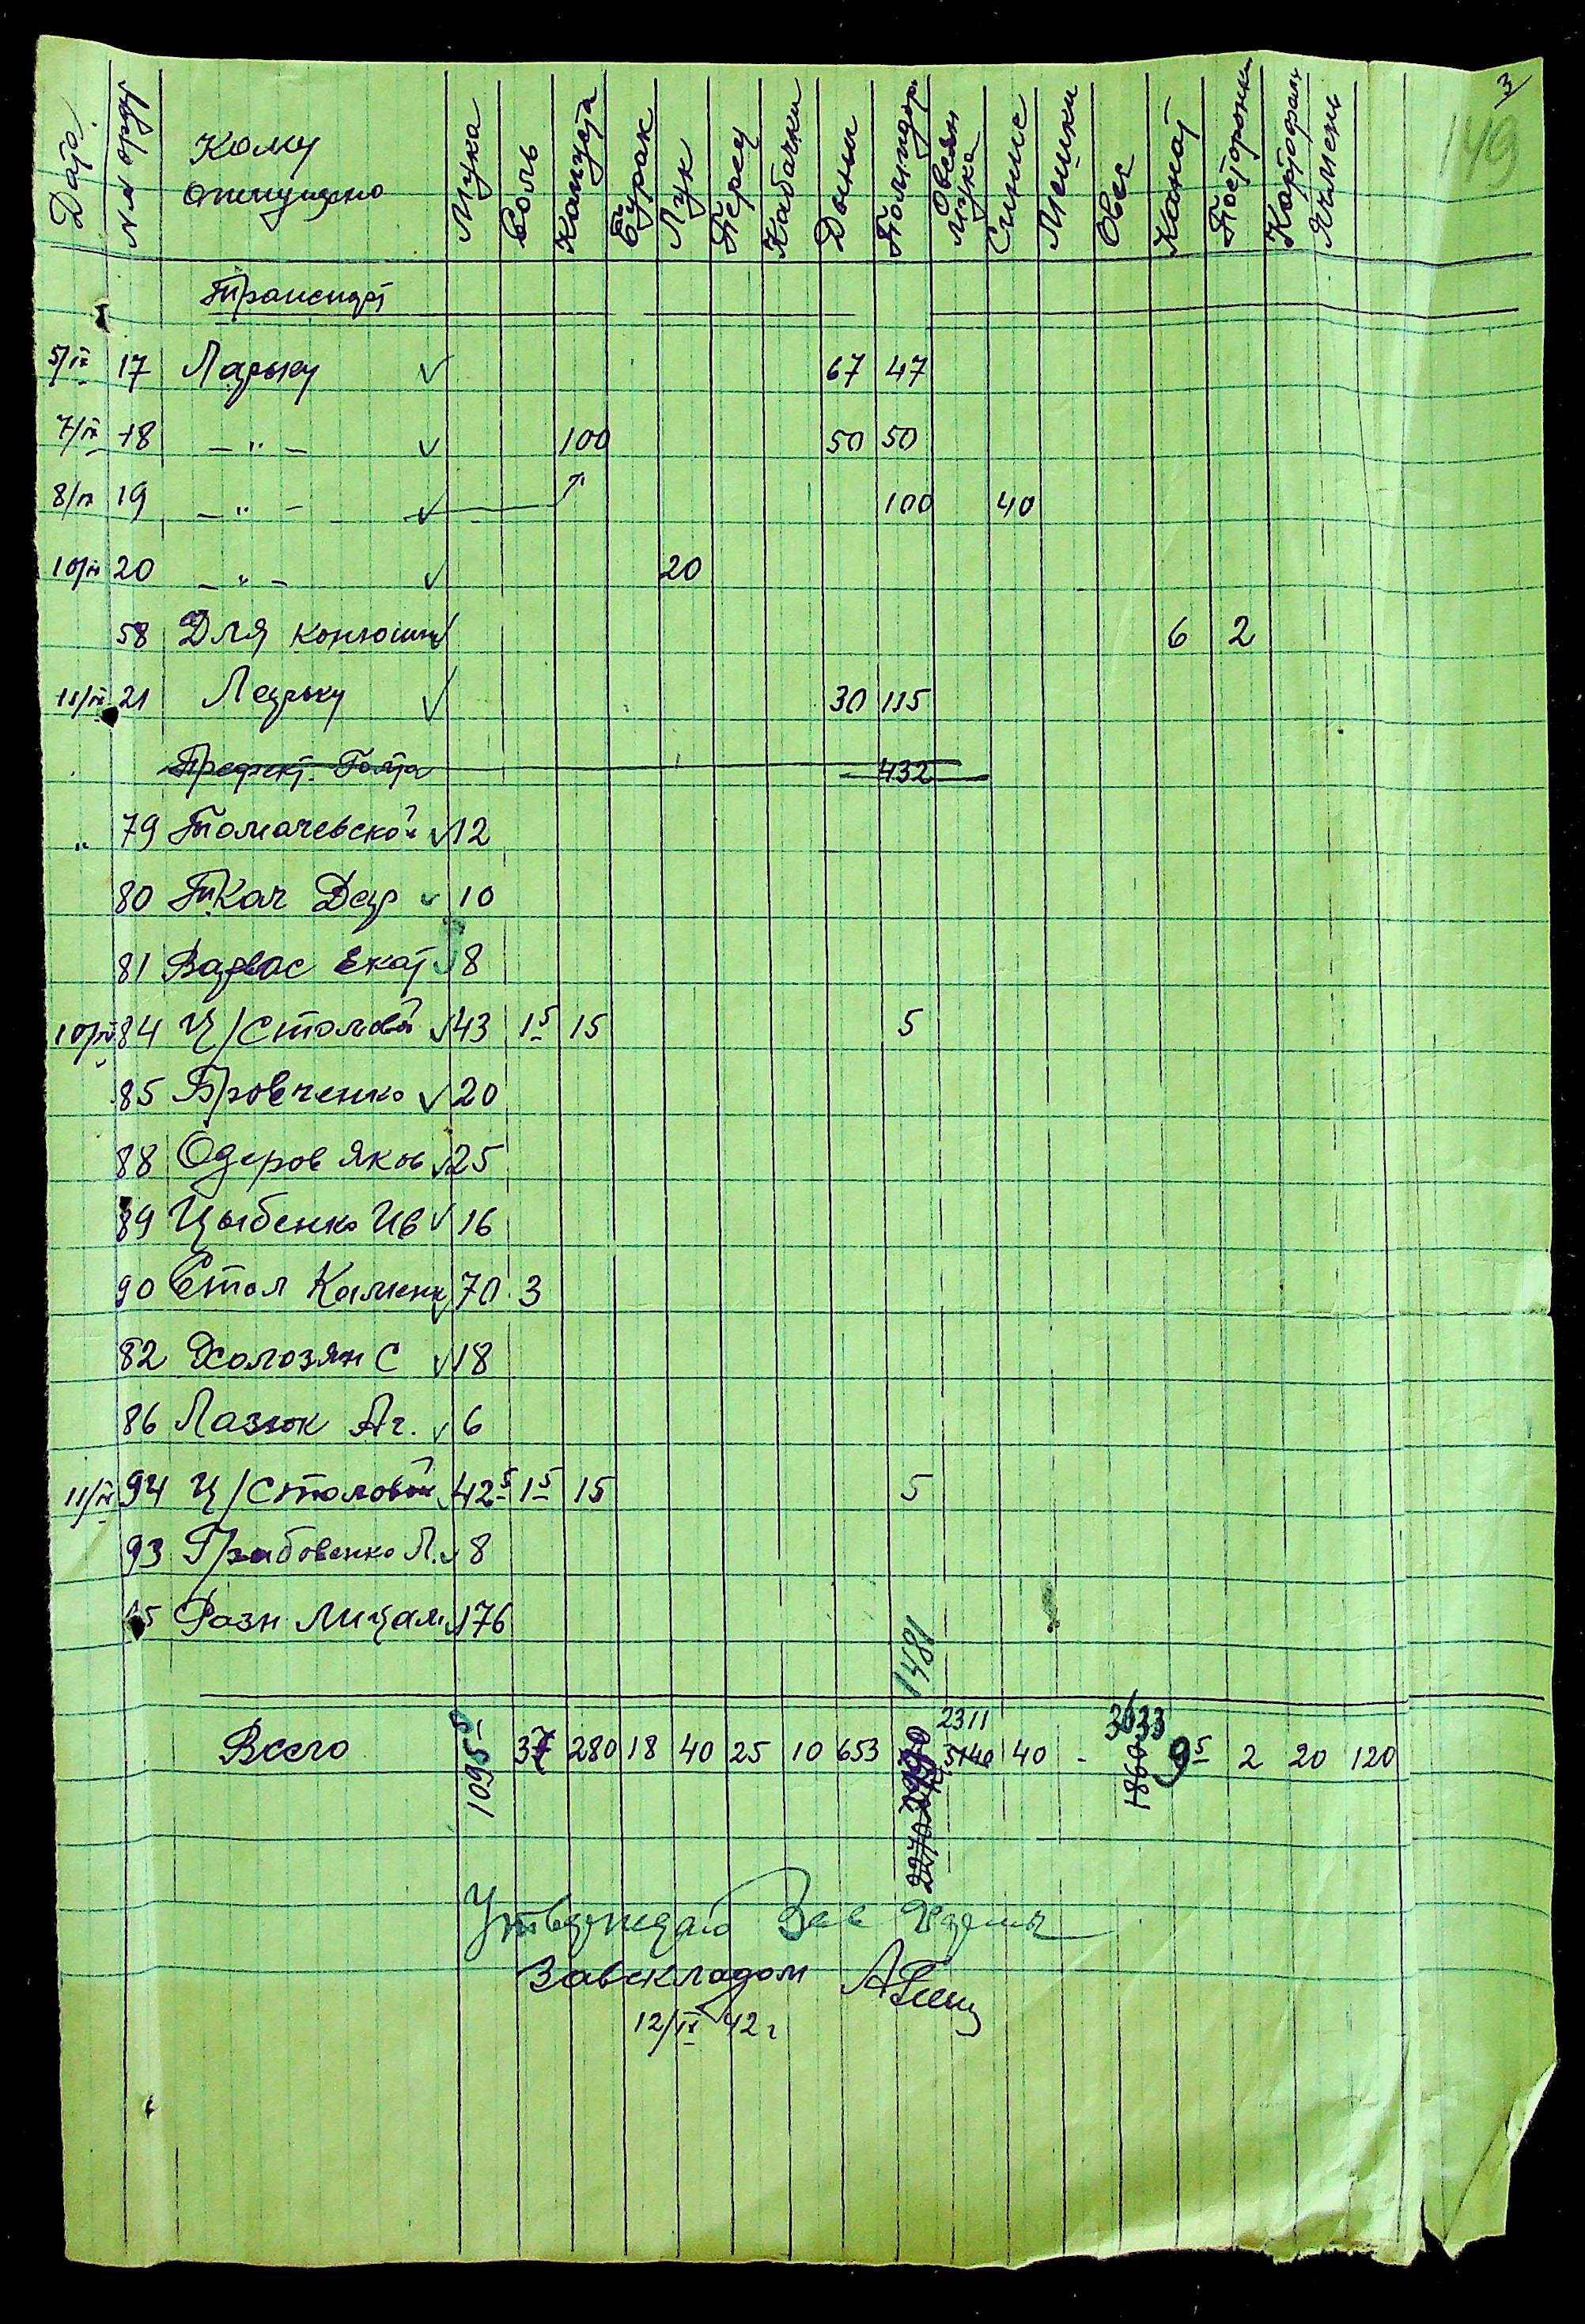 3
149
Дата № № орд Кому отпущено Мука Соль Капуста Бурак Лук Перец Кабачки Дыни Помидор Овсян мука Синие Мешки Овес Канат Посторонки Картофель Ячмень
Транспорт
5/IX 17 Ларьку ✓ 67 47
7/IX 18 — " — ✓ 100 50 50
8/IX 19 — " — ✓ 100 40
10/IX 20 — " — ✓ 20
58 Для конюшни ✓ 6 2
11/IX 21 Ларьку ✓ 30 115
Префект. Голта 432
" 79 Томачевской ✓ 12
80 Ткач Дар ✓ 10
81 Варвас Екат ✓ 8
10/IX 84 Ц/Столовой ✓ 43 1 5 15 5
85 Бровченко ✓ 20
88 Одеров Яков ✓ 25
89 Цыбенко Ив ✓ 16
90 Стол Каменц 70 3
82 Холозян С ✓ 18
86 Лазюк Аг. ✓ 6
11/IX 94 Ц/Столовой ✓ 42 5 1 5 15 5
93 Грабовенко Л. ✓ 8
95 Разн лицам ✓ 176
1481
Всего 1095 5 37 280 18 40 25 10 653 2311 5140 40 - 3633 1860 9 5 2 20 120
Утверждаю
Завскладом
12/IX 42 г